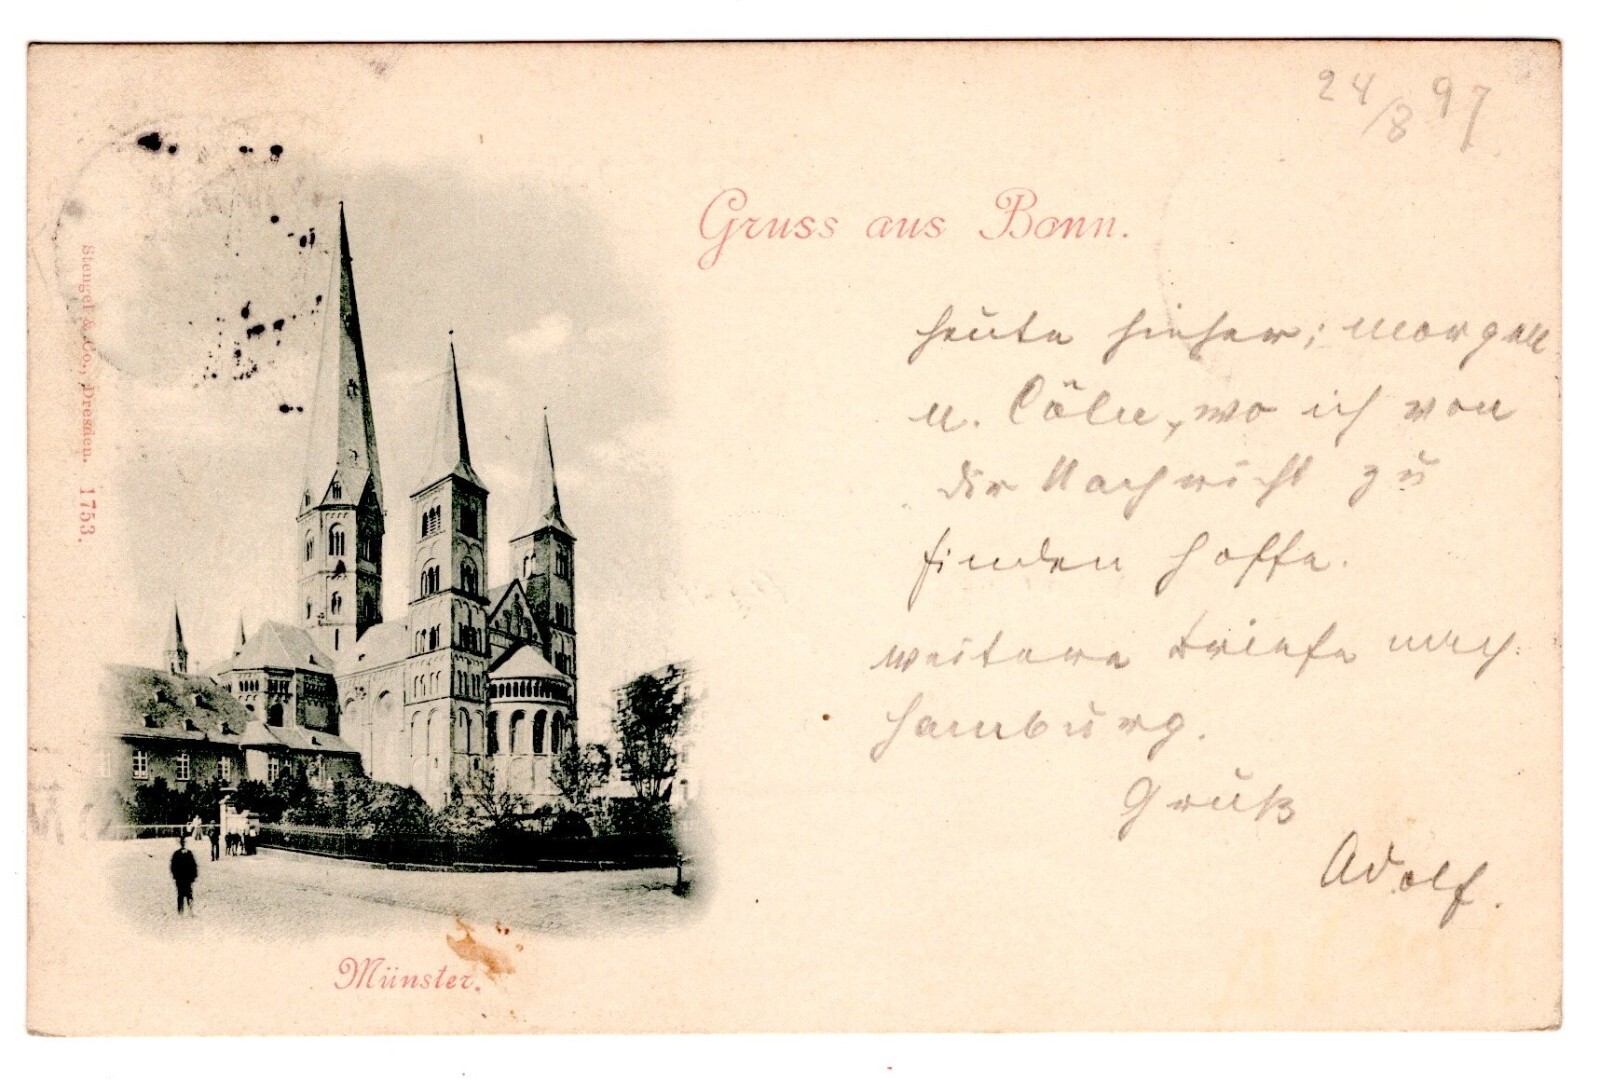 24/8 97
Gruss aus Bonn.
heute hieher; morgen
n. Cöln, wo ich von
dir Nachricht zu
finden hoffe.
weitere Briefe nach
Hamburg.
Gruß
Adolf.
Stengel & Co., Dresden. 1753.
Münster.